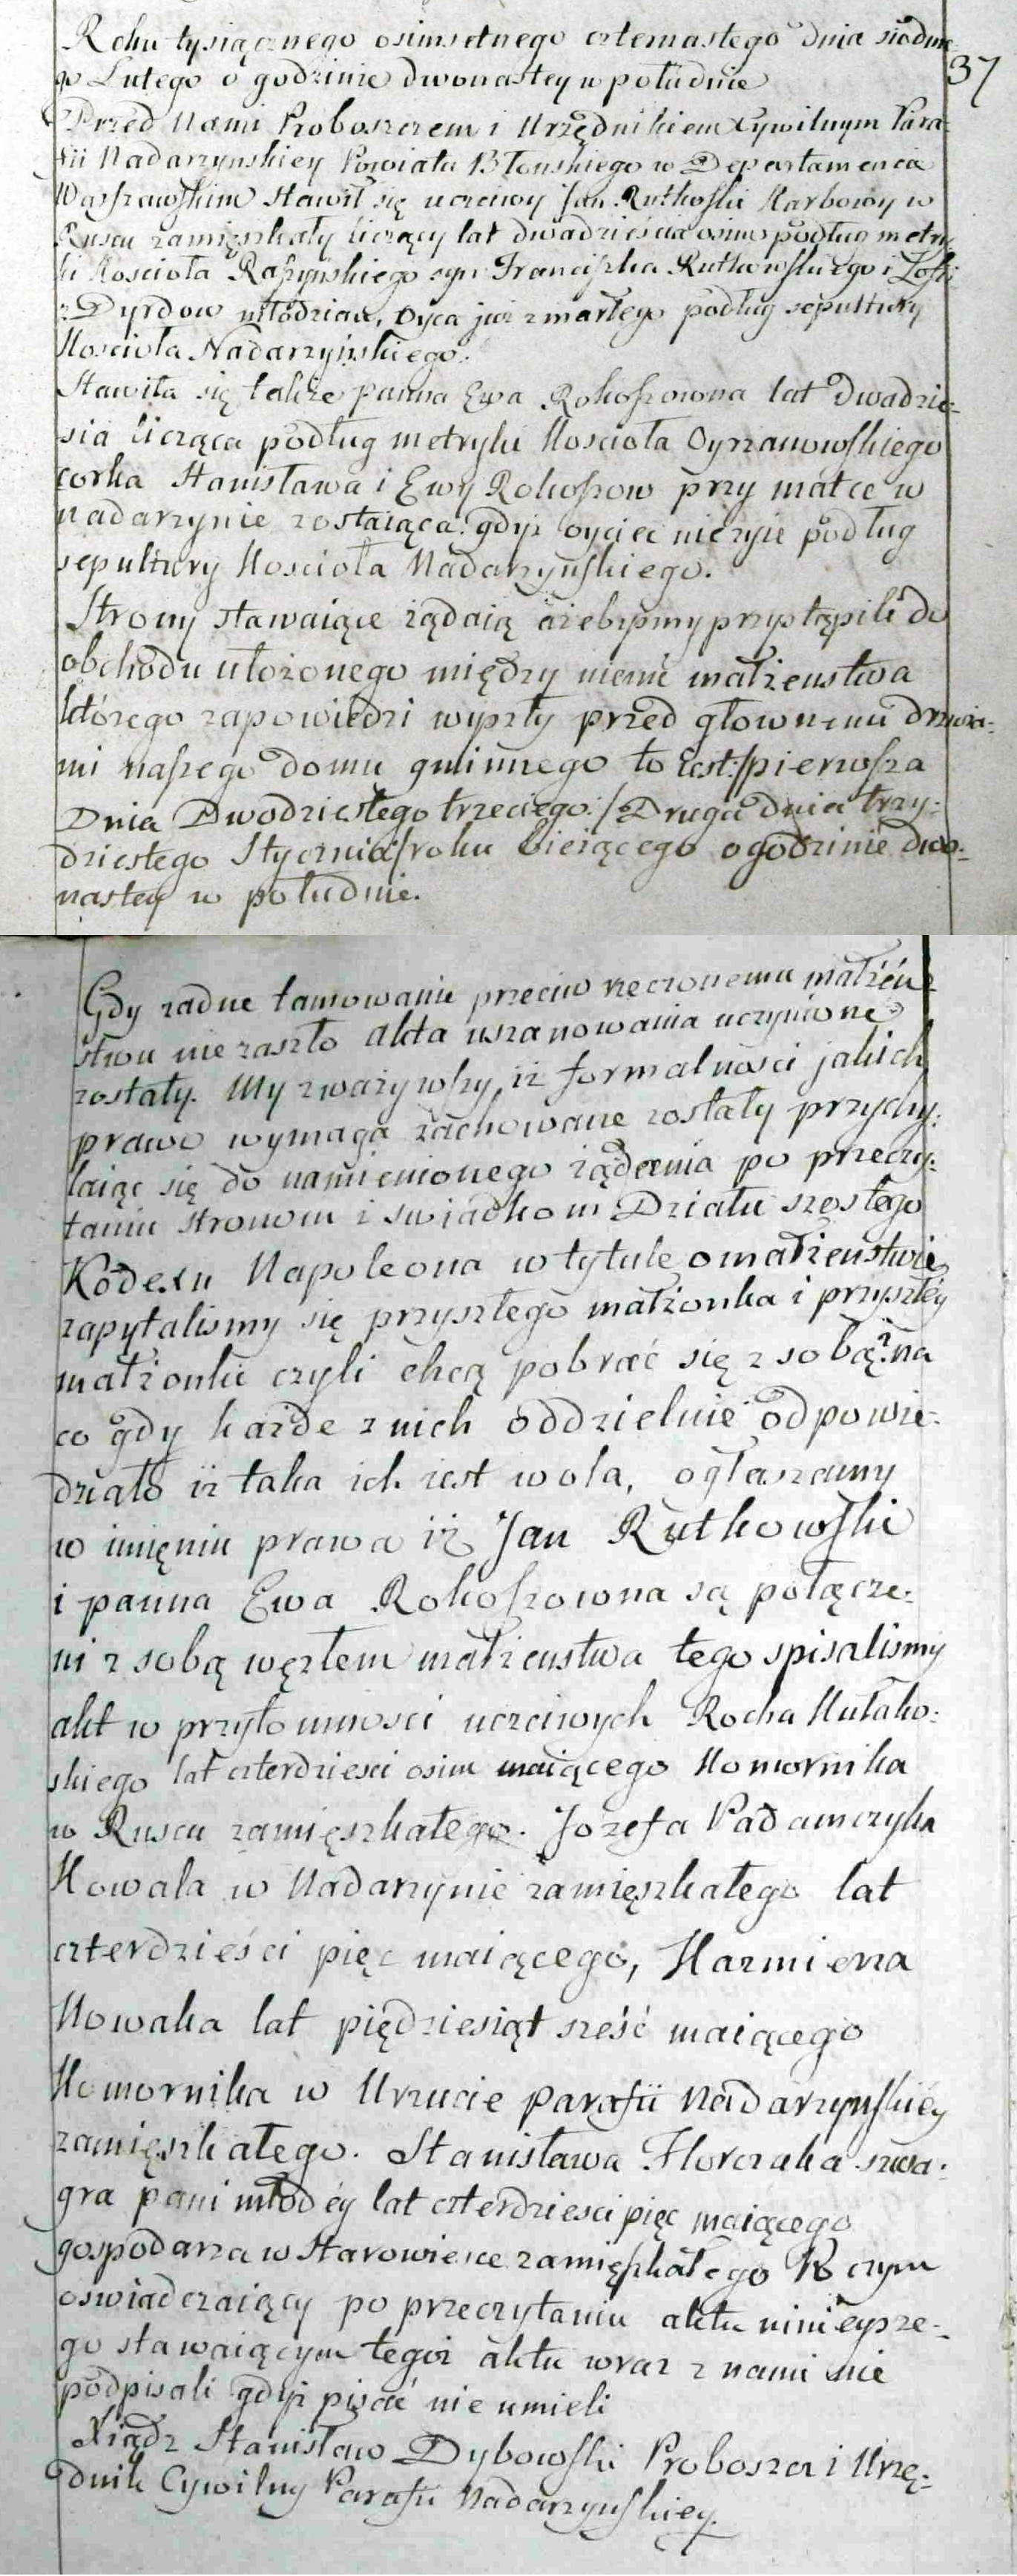 Roku tysiącznego osimsetnego czternastego dnia siodme-
go Lutego o godzinie dwonastey w południe
37
Przed Nami Proboszczem i Urzędnikiem Cywilnym Para-
fii Nadarzynskiey Powiatu Błonskiego w Departamencie
Warszawskim stawił się uczciwy Jan Rutkoski Karbowy w
Ruscu zamięszkały liczący lat dwadzieścia osim podług metry-
ki Kościoła Raszynskiego syn Franciszka Rutkowskiego i Zofii
z Dyrdow młodzian, oyca już zmarłego podług sepultury
Kościoła Nadarzyńskiego.
Stawiła się także panna Ewa Rokoszowna lat dwadzie-
sia licząca podług metryki Kosciola Oyrzanowskiego
corka Stanisława i Ewy Rokoszow przy matce w
nadarzynie zostaiąca: gdyż oyciec nieżyie podług
sepultury Kosciola Nadarzynskiego.
Strony stawaiące żądaią ażebysmy przystąpili do
obchodu ułożonego między niemi małżenstwa
którego zapowiedzi wyszły przed głownemi drzwia-
mi naszego domu gminnego to iest:/pierwsza
Dnia Dwodziestego trzeciego:/Druga dnia trzy-
dziestego Stycznia/roku bieżącego o godzinie dwo-
nastey w południe.
Gdy żadne tamowanie przeciw rzeczonemu małżeń-
stwu nie zaszło Akta uszanowania uczynione
zostały. My zważywszy, iż formalnosci jakich
prawo wymaga zachowane zostały przychy-
laiąc się do namienionego żądania po przeczy-
taniu stronom i swiadkom Działu szostego
Kodexu Napoleona w tytule o małżenstwie
zapytalismy się przyszłego małżonka i przyszłéy
małżonki czyli chcą pobrać się z sobą? na
co gdy każde z nich oddzielnie odpowie-
działo iż taka ich iest wola, ogłaszamy
w imięniu prawa iż Jan Rutkowski
i panna Ewa Rokoszowna są połącze-
ni z sobą węzłem małżenstwa tego spisalismy
akt w przytomnosci uczciwych Rocha Kułako-
skiego lat czterdziesci osim maiącego Komornika
w Ruscu zamięszkałego. Jozefa Padamczyka
Kowala w Nadarzynie zamięszkałego lat
czterdzieści pięc maiącego, Kazmierza
Nowaka lat piędziesiąt sześć maiącego
Komornika w Urzucie parafii Nadarzynskiéy
zamięszkałego. Stanisława Florczaka szwa-
gra pani młodéy lat czterdziesci pięc maiącego
gospodarza w Starowiesce zamięszkałego w czym
oswiadczaiący po przeczytaniu aktu ninieysze-
go stawaiącym tegoż aktu wraz z nami nie
podpisali gdyż pisać nie umieli
Xiądz Stanisław Dybowski Proboszcz i Urzę-
dnik Cywilny Parafii Nadarzynskiey.